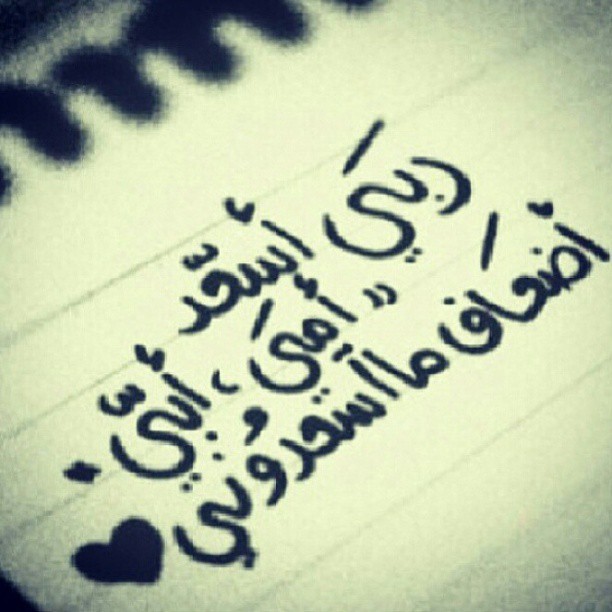 ربي أسعد
" أمي ، أبي .
أضعاف ما اسعدوني